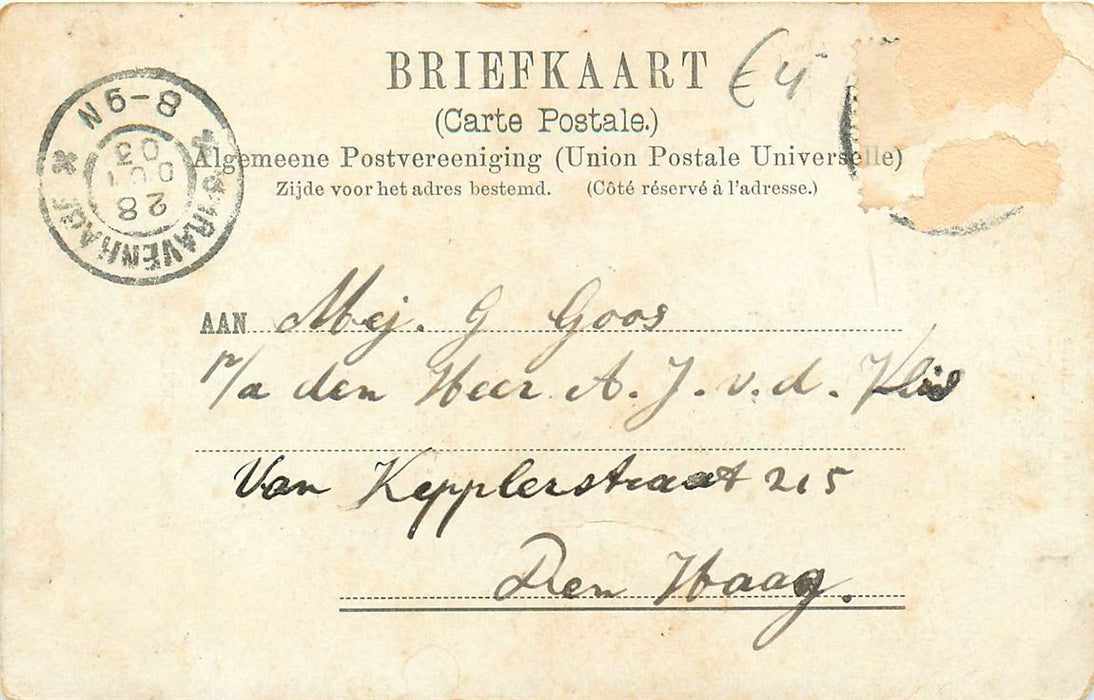 BRIEFKAART € 4,-
(Carte Postale.)
Algemeene Postvereeniging (Union Postale Universelle)
Zijde voor het adres bestemd. (Côté réservé à l'adresse.)
'S GRAVENHAGE
28
03
8-9N
AAN Mej. G Goos
p/a den Heer A. J. v. d. Klis
Van Kepplerstraat 215
Den Haag.